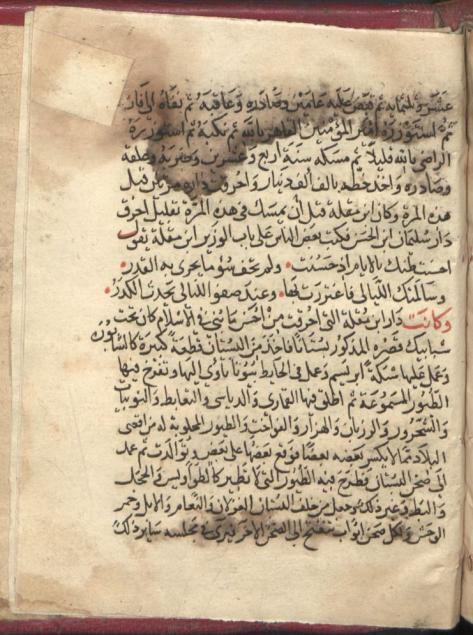 عشر وثلثمايه ثم قبض عليه عامين وصادره وعاقبه ثم نفاه الى فارس
ثم استوزره امير المؤمنين القاهر بالله ثم نكبه ثم استوزره
الراضي بالله قليلا ثم مسكه سنة اربع وعشرين وضربه وعلقه
وصادره واخذ خطه بالف الف دينار واحرقت داره من قبل
هذه المرة وكان ابن مقلة قبل أن يمسك في هذه المرة بقليل احرق
دار سليمان ابن الحسن فكتب بعض الناس على باب الوزير ابن مقلة يقول
احسنت ظنك بالايام اذ حسنت ولم تخف سوء ما يجرى به القدر
وسالمتك الليالى فاغتررت بها وعند صفو الليالى يحدث الكدر
وكانت دار ابن مقلة التى احرقت من احسن ما بنى في الاسلام كان تحت
شبابيك قصره المذكور بستانا فاخذ من البستان قطعة كبيرة كالشابورة
وعمل عليها شبكة ابريسم وعمل في الحايط بيوتا تأوى اليها وتفرخ فيها
الطيور المسموعة ثم اطلق فيها القمارى والدباسى والنوبيات
والشحرور والزرياب والهزار والفواخت والطيور المجلوبة له من اقصى
البلاد مما لا يكسر بعضه بعضا فوقع بعضها على بعض وتوالدت ثم عمد
الى صحن البستان فطرح فيه الطيور التى لا تطير كالطواويس والحجل
والبط وغير ذلك وجعل من خلف البستان الغزلان والنعام والايل وحمر
الوحش ولكل صحن ابواب تنفتح الى الصحن الاخر فيرى في مجلسه ساير ذلك